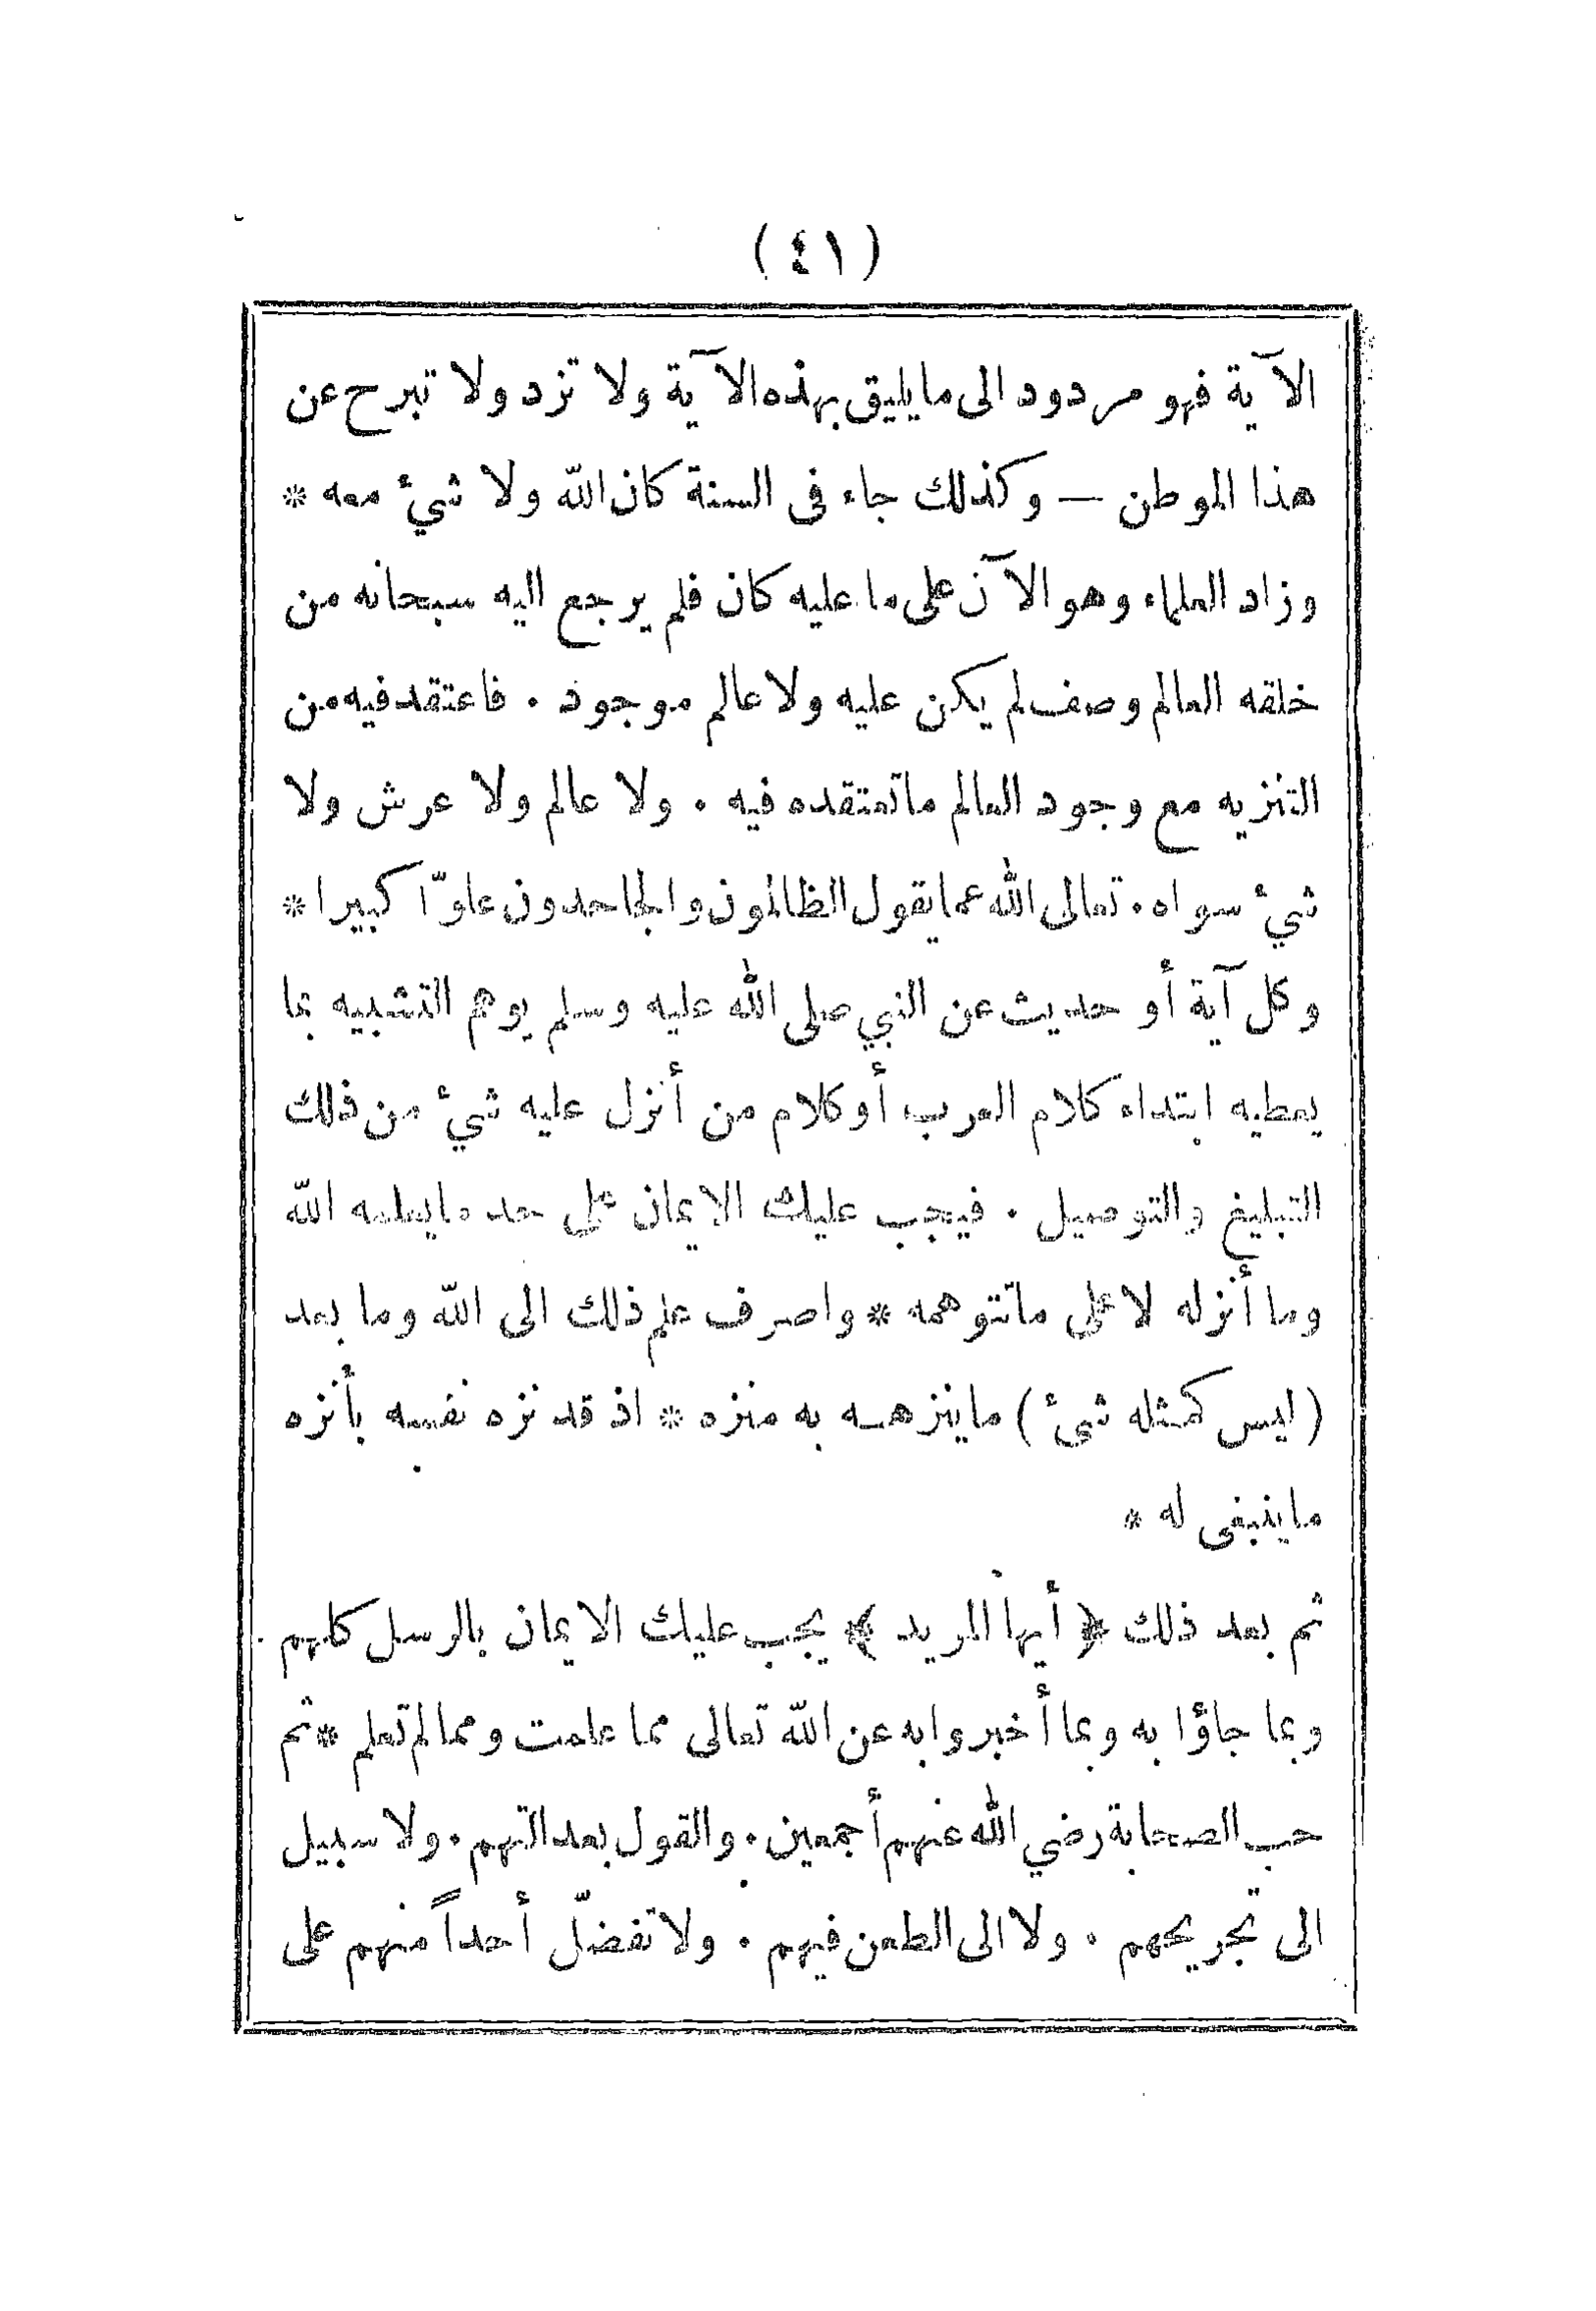 (٤١)
الآية فهو مردود الى ما يليق بهذه الآية ولا تزد ولا تبرح عن
هذا الموطن — وكذلك جاء فى السنة كان الله ولا شيء معه *
وزاد العلماء وهو الآن على ما عليه كان فلم يرجع اليه سبحانه من
خلقه العالم وصف لم يكن عليه ولا عالم موجود . فاعتقد فيه من
التنزيه مع وجود العالم ما تعتقده فيه . ولا عالم ولا عرش ولا
شيء سواه . تعالى الله عما يقول الظالمون والجاحدون علوّاً كبيرا *
وكل آية أو حديث عن النبي صلى الله عليه وسلم يوهم التشبيه بما
يعطيه ابتداء كلام العرب أو كلام من أنزل عليه شيء من ذلك
التبليغ والتوصيل . فيجب عليك الإيمان على حد ما يعلمه الله
وما أنزله لا على ما تتوهمه * واصرف علم ذلك الى الله وما بعد
(ليس كمثله شئ) ما ينزهه به منزه * اذ قد نزه نفسه بأنزه
ما ينبغى له *
ثم بعد ذلك ﴿أيها المريد﴾ يجب عليك الايمان بالرسل كلهم
وبما جاؤا به وبما أخبروا به عن الله تعالى مما علمت ومما لم تعلم * ثم
حب الصحابة رضي الله عنهم أجمعين . والقول بعدالتهم . ولا سبيل
الى تجريحهم . ولا الى الطعن فيهم . ولا تفضّل أحداً منهم على